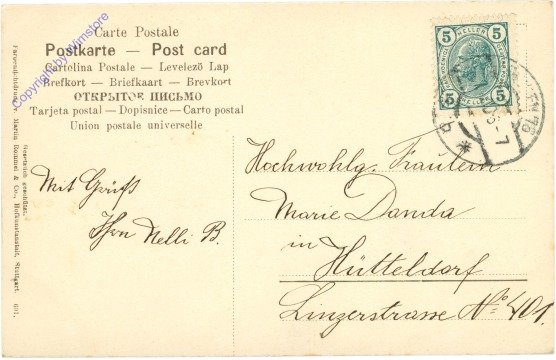 Carte Postale
Postkarte — Post card
Cartolina Postale — Levelező Lap
Brefkort — Briefkaart — Brevkort
ОТКРЫТОЕ ПИСЬМО
Tarjeta postal — Dopisnice — Carto postal
Union postale universelle
Copyright by Wimstore
Gesetzlich geschützt.
Martin Rommel & Co., Hofkunstanstalt, Stuttgart. 601.
5 HELLER 5
5 HELLER 5
Mit Gruß
Ihre Nelli B.
Hochwohlg. Fräulein
Marie Danda
in
Hütteldorf
Linzerstrasse No 401.